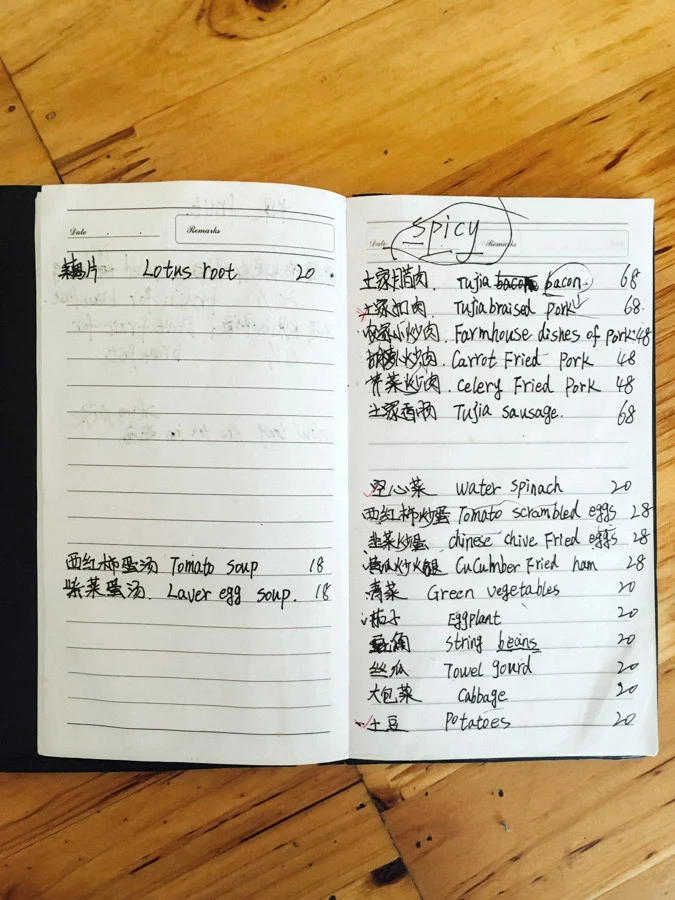 Date Remarks
藕片 Lotus root 20
西红柿蛋汤 Tomato soup 18
紫菜蛋汤. Laver egg soup. 18
Spicy
Date Remarks
土家腊肉. Tujia bacon 68
土家扣肉 Tujia braised pork 68
农家小炒肉. Farmhouse dishes of pork. 48
胡萝卜炒肉. Carrot Fried pork 48
芹菜炒肉. celery Fried pork 48
土家香肠 Tujia sausage. 68
空心菜 water spinach 20
西红柿炒蛋 Tomato scrambled eggs 28
韭菜炒蛋 chinese chive Fried eggs 28
黄瓜炒火腿 CuCumber Fried ham 28
青菜 Green vegetables 20
茄子 Eggplant 20
豆角 string beans 20
丝瓜 Towel gourd 20
大包菜 Cabbage 20
土豆 Potatoes 20